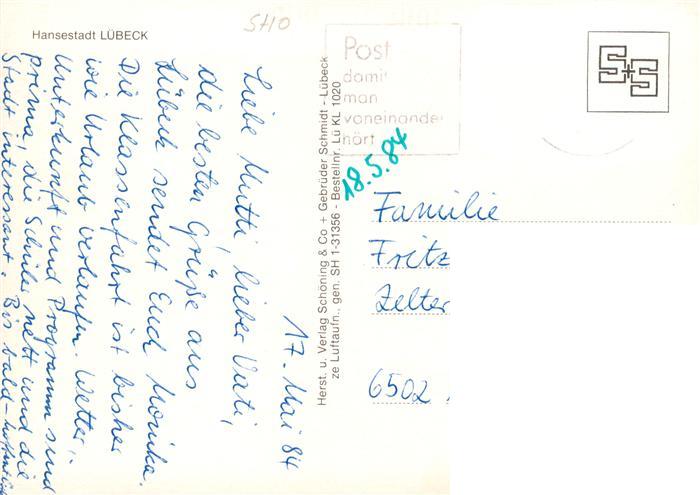 Hansestadt LÜBECK
SH10
17. Mai 84
Liebe Mutti, lieber Vati,
die besten Grüße aus
Lübeck sendet Euch Monika.
Die Klassenfahrt ist bisher
wie Urlaub verlaufen. Wetter,
Unterkunft und Programm sind
prima, die Schüler nett und die
Stadt interessant. Bis bald -
Herst. u. Verlag Schöning & Co + Gebrüder Schmidt - Lübeck
ze Luftaufn., gen. SH 1-31356 - Bestellnr. Lü KL 1020
Post
damit
man
voneinander
hört
18.5.84
S+S
Familie
Fritz
Zelter
6502